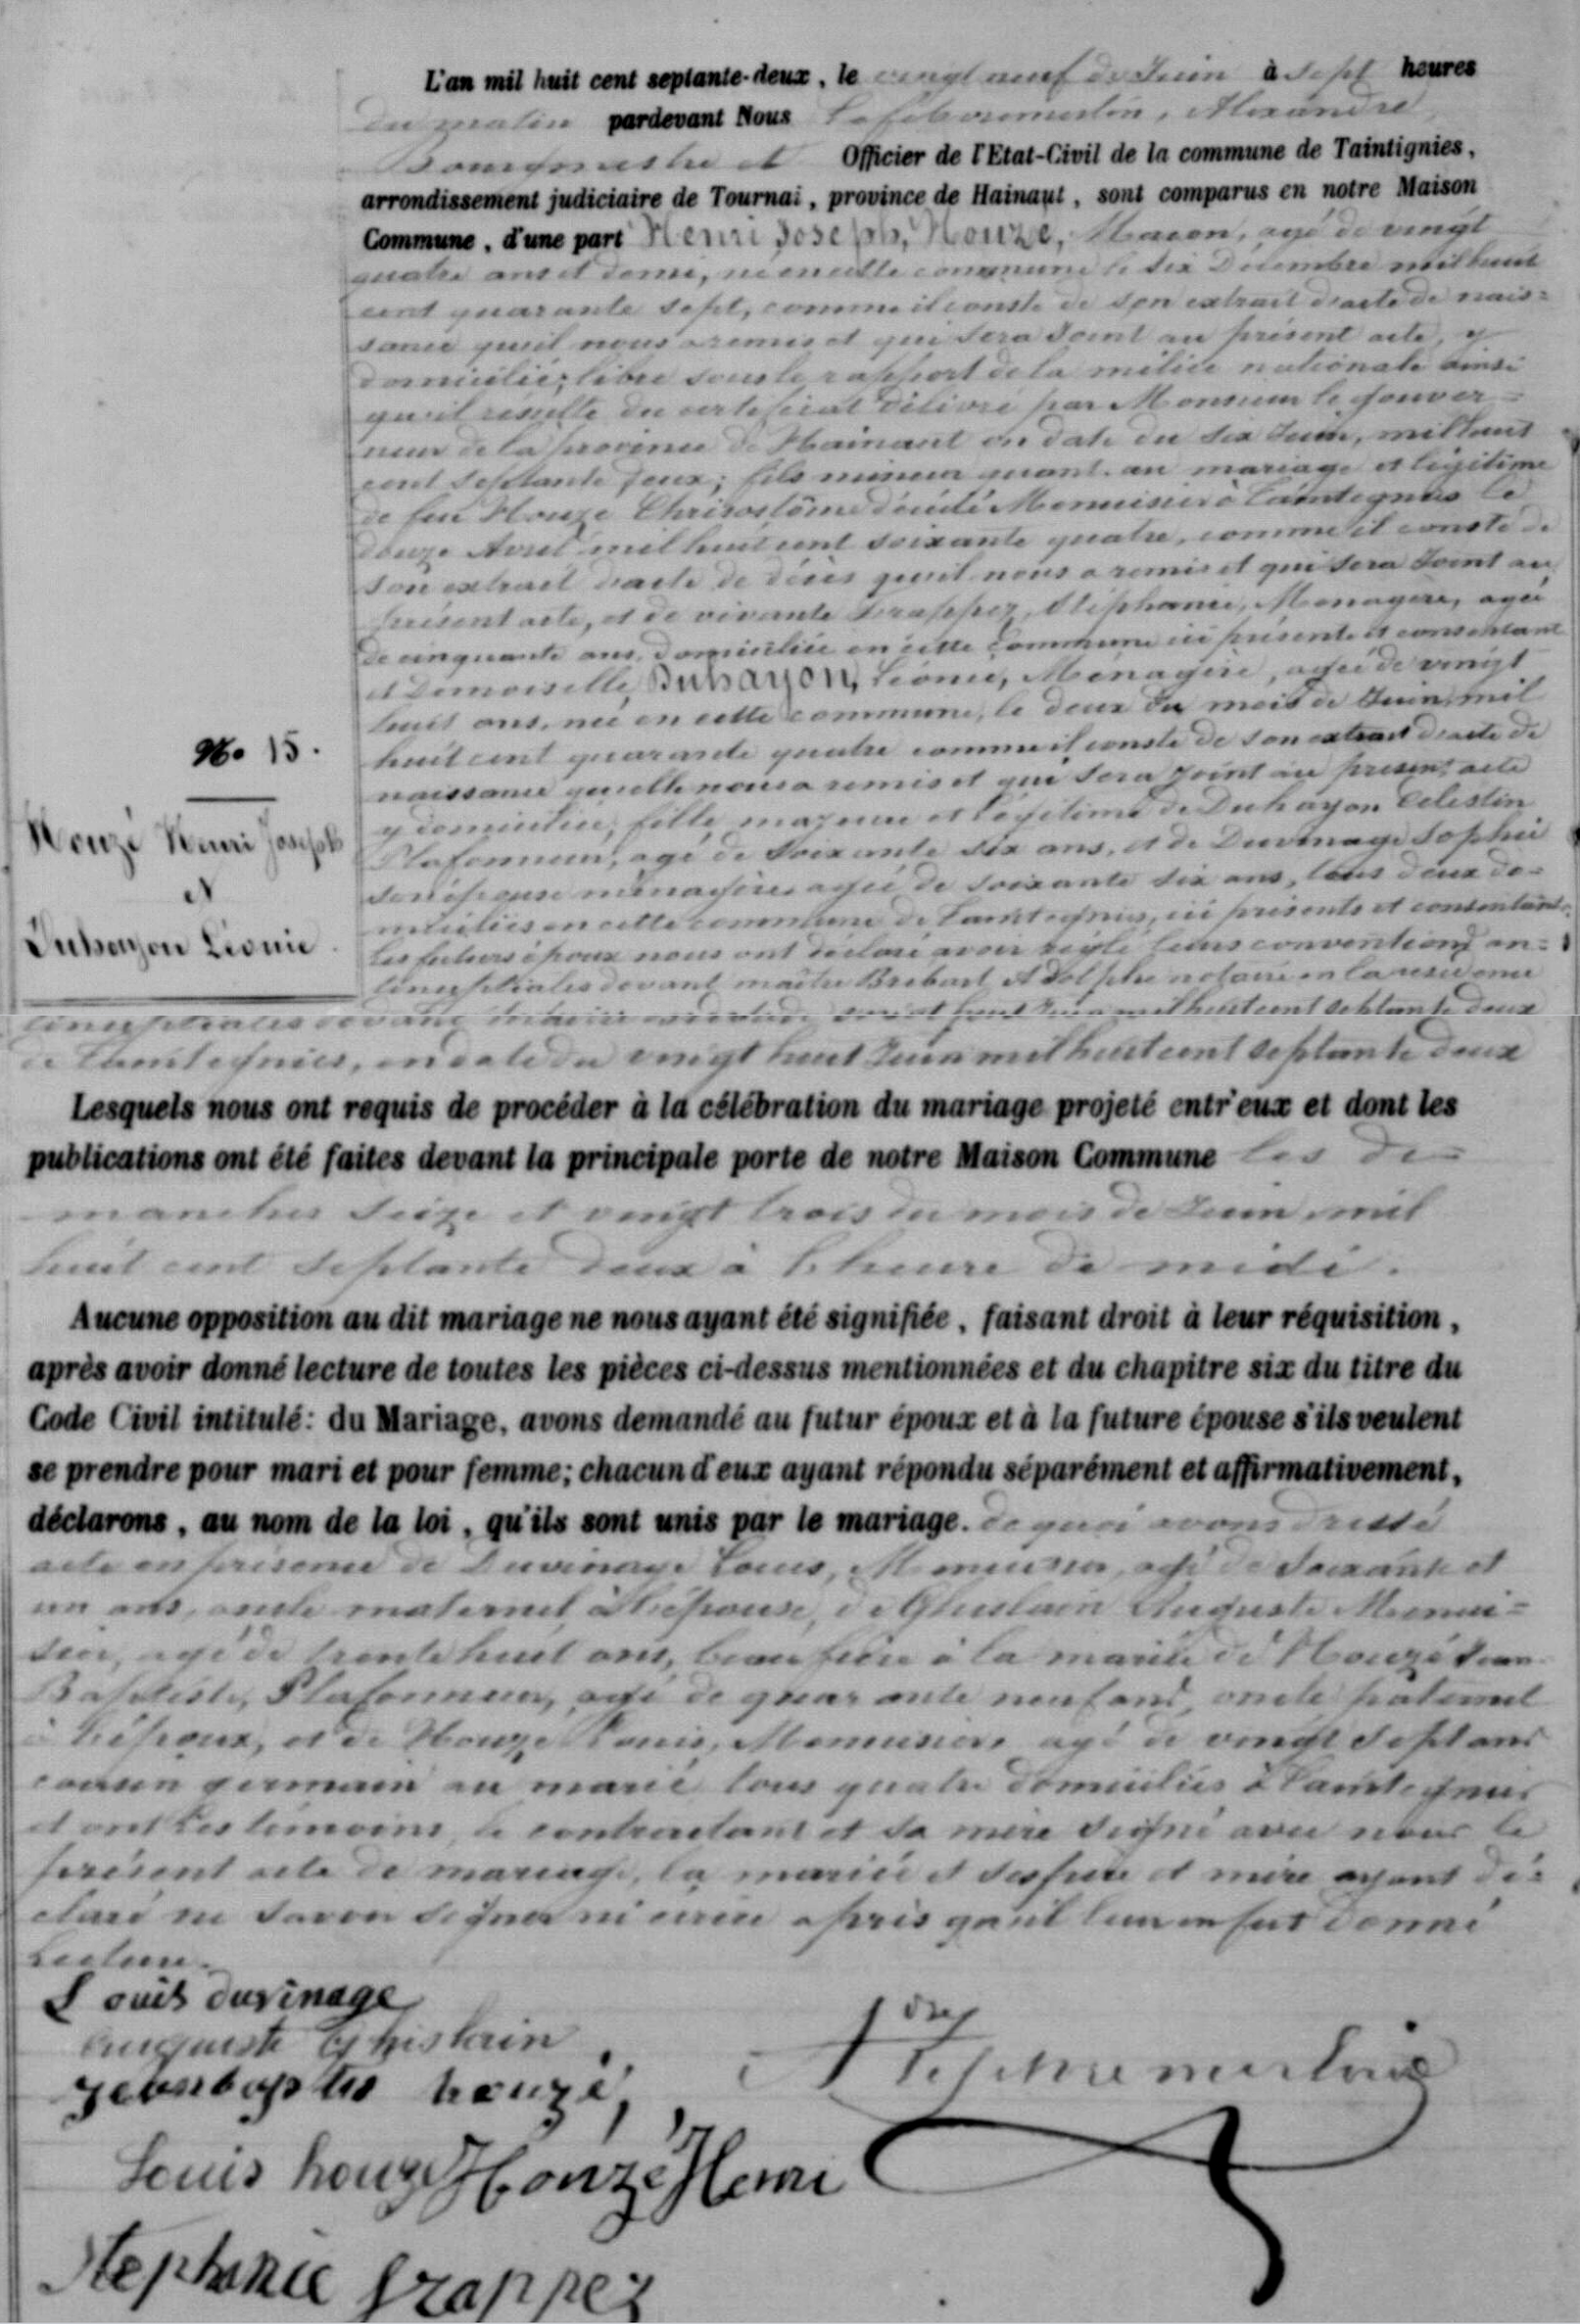 L'an mil huit cent septante-deux, le vingt neuf de Juin à sept heures
du matin pardevant Nous Lefebvremartin, Alexandre
Bourgmestre et Officier de l'Etat-Civil de la commune de Taintignies,
arrondissement judiciaire de Tournai, province de Hainaut, sont comparus en notre Maison
Commune, d'une part Henri Joseph, Houzé, Macon, agé de vingt
quatre ans et demi, né en cette commune le six Décembre mil huit
cent quarante sept, comme il conste de son extrait d'acte de nais=
sance qu'il nous a remis et qui sera Joint au présent acte, y
domicilié; libre sous le rapport de la milice nationale ainsi
qu'il résulte du certificat délivré par Monsieur le gouver=
neur de la province de Hainaut en date du six Juin, mil huit
cent septante deux; fils mineur quant au mariage et légitime
de feu Houzé Chrisostôme décédé Menuisier à Taintegnies le
douze Avril mil huit cent soixante quatre, comme il conste de
son extrait d'acte de décès qu'il nous a remis et qui sera Joint au
présent acte, et de vivante Frappez, Stéphanie, Menagère, agée
de cinquante ans, domiciliée en cette Commune ici présente et consentant
et Demoiselle Duhayon, Léonie, Ménagère, agée de vingt
huit ans, née en cette commune, le deux du mois de Juin mil
No 15.
huit cent quarante quatre comme il conste de son extrait d'acte de
naissance qu'elle nous a remis et qui sera Joint au présent acte
y domiciliée, fille majeure et légitime de Duhayon Célestin
Houzé Henri Joseph
Plafonneur, agé de soixante six ans, et de Duvinage Sophie
son épouse ménagère agée de soixante six ans, tous deux do=
et
miciliés en cette commune de Taintegnies, ici présents et consentants.
Duhayon Léonie.
Les futurs époux nous ont déclaré avoir réglé leurs conventions an=
ténuptiales devant maître Brébart Adolphe notaire en la résidence
de Taintegnies, en date du vingt huit Juin mil huit cent septante deux
Lesquels nous ont requis de procéder à la célébration du mariage projeté entr'eux et dont les
publications ont été faites devant la principale porte de notre Maison Commune les di=
manches seize et vingt trois du mois de Juin mil
huit cent septante deux à l'heure de midi.
Aucune opposition au dit mariage ne nous ayant été signifiée, faisant droit à leur réquisition,
après avoir donné lecture de toutes les pièces ci-dessus mentionnées et du chapitre six du titre du
Code Civil intitulé: du Mariage, avons demandé au futur époux et à la future épouse s'ils veulent
se prendre pour mari et pour femme; chacun d'eux ayant répondu séparément et affirmativement,
déclarons, au nom de la loi, qu'ils sont unis par le mariage. de quoi avons dressé
acte en présence de Duvinage Louis, Menuisier, agé de soixante et
un ans, oncle maternel à l'épouse, de Ghislain Auguste Menui=
sier, agé de trente huit ans, beau frère à la mariée de Houzé Jean
Baptiste, Plafonneur, agé de quarante neuf ans, oncle paternel
à l'époux, et de Houzé Louis, Menuisier agé de vingt sept ans
cousin germain au marié tous quatre domiciliés à Taintegnies
et ont les témoins, le contractant et sa mère signé avec nous le
présent acte de mariage, la mariée et ses père et mère ayant dé=
claré ne savoir signer ni écrire après qu'il leur en fut donné
Lecture.
Louis duvinage
auguste Ghislain
jeanbaptis houzé
Louis houzé Houzé Henri
Stephanie frappez